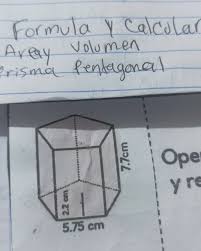 Formula y Calcular
Area y Volumen
Prisma Pentagonal
7.7cm
2.2 cm
5.75 cm
Ope
y re